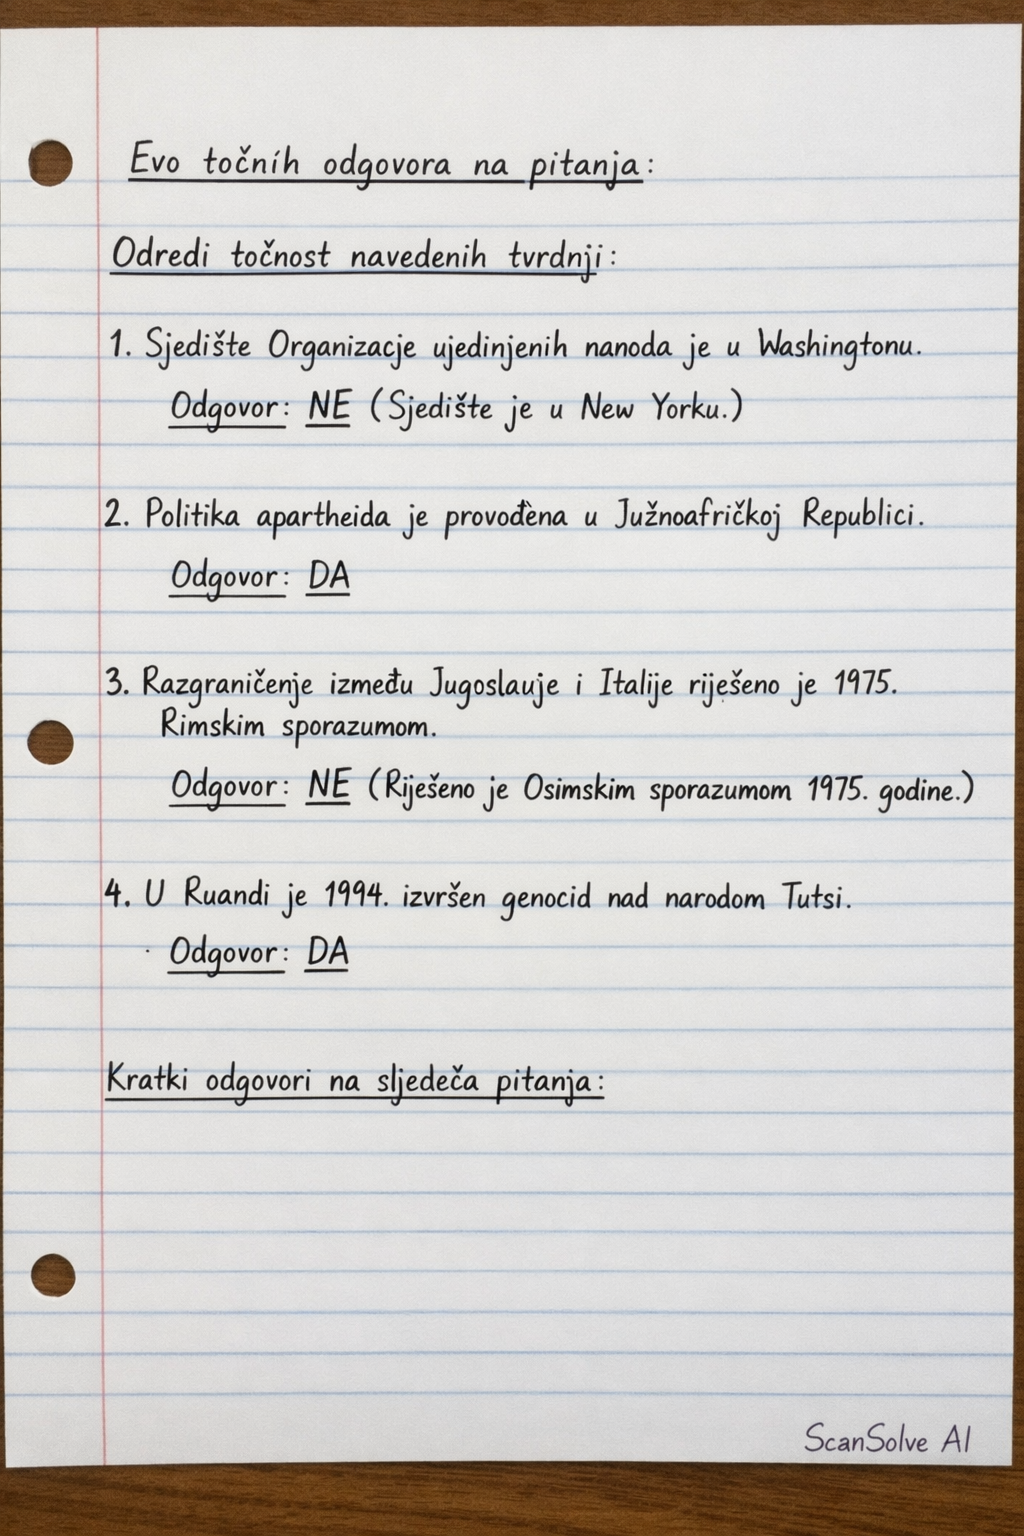 Evo točníh odgovora na pitanja:
Odredi točnost navedenih tvrdnji:
1. Sjedište Organizacje ujedinjenih nanoda je u Washingtonu.
Odgovor: NE (Sjedište je u New Yorku.)
2. Politika apartheida je provođena u Južnoafričkoj Republici.
Odgovor: DA
3. Razgraničenje između Jugoslauje i Italije riješeno je 1975.
Rimskim sporazumom.
Odgovor: NE (Riješeno je Osimskim sporazumom 1975. godine.)
4. U Ruandi je 1994. izvršen genocid nad narodom Tutsi.
Odgovor: DA
Kratki odgovori na sljedeča pitanja:
ScanSolve AI